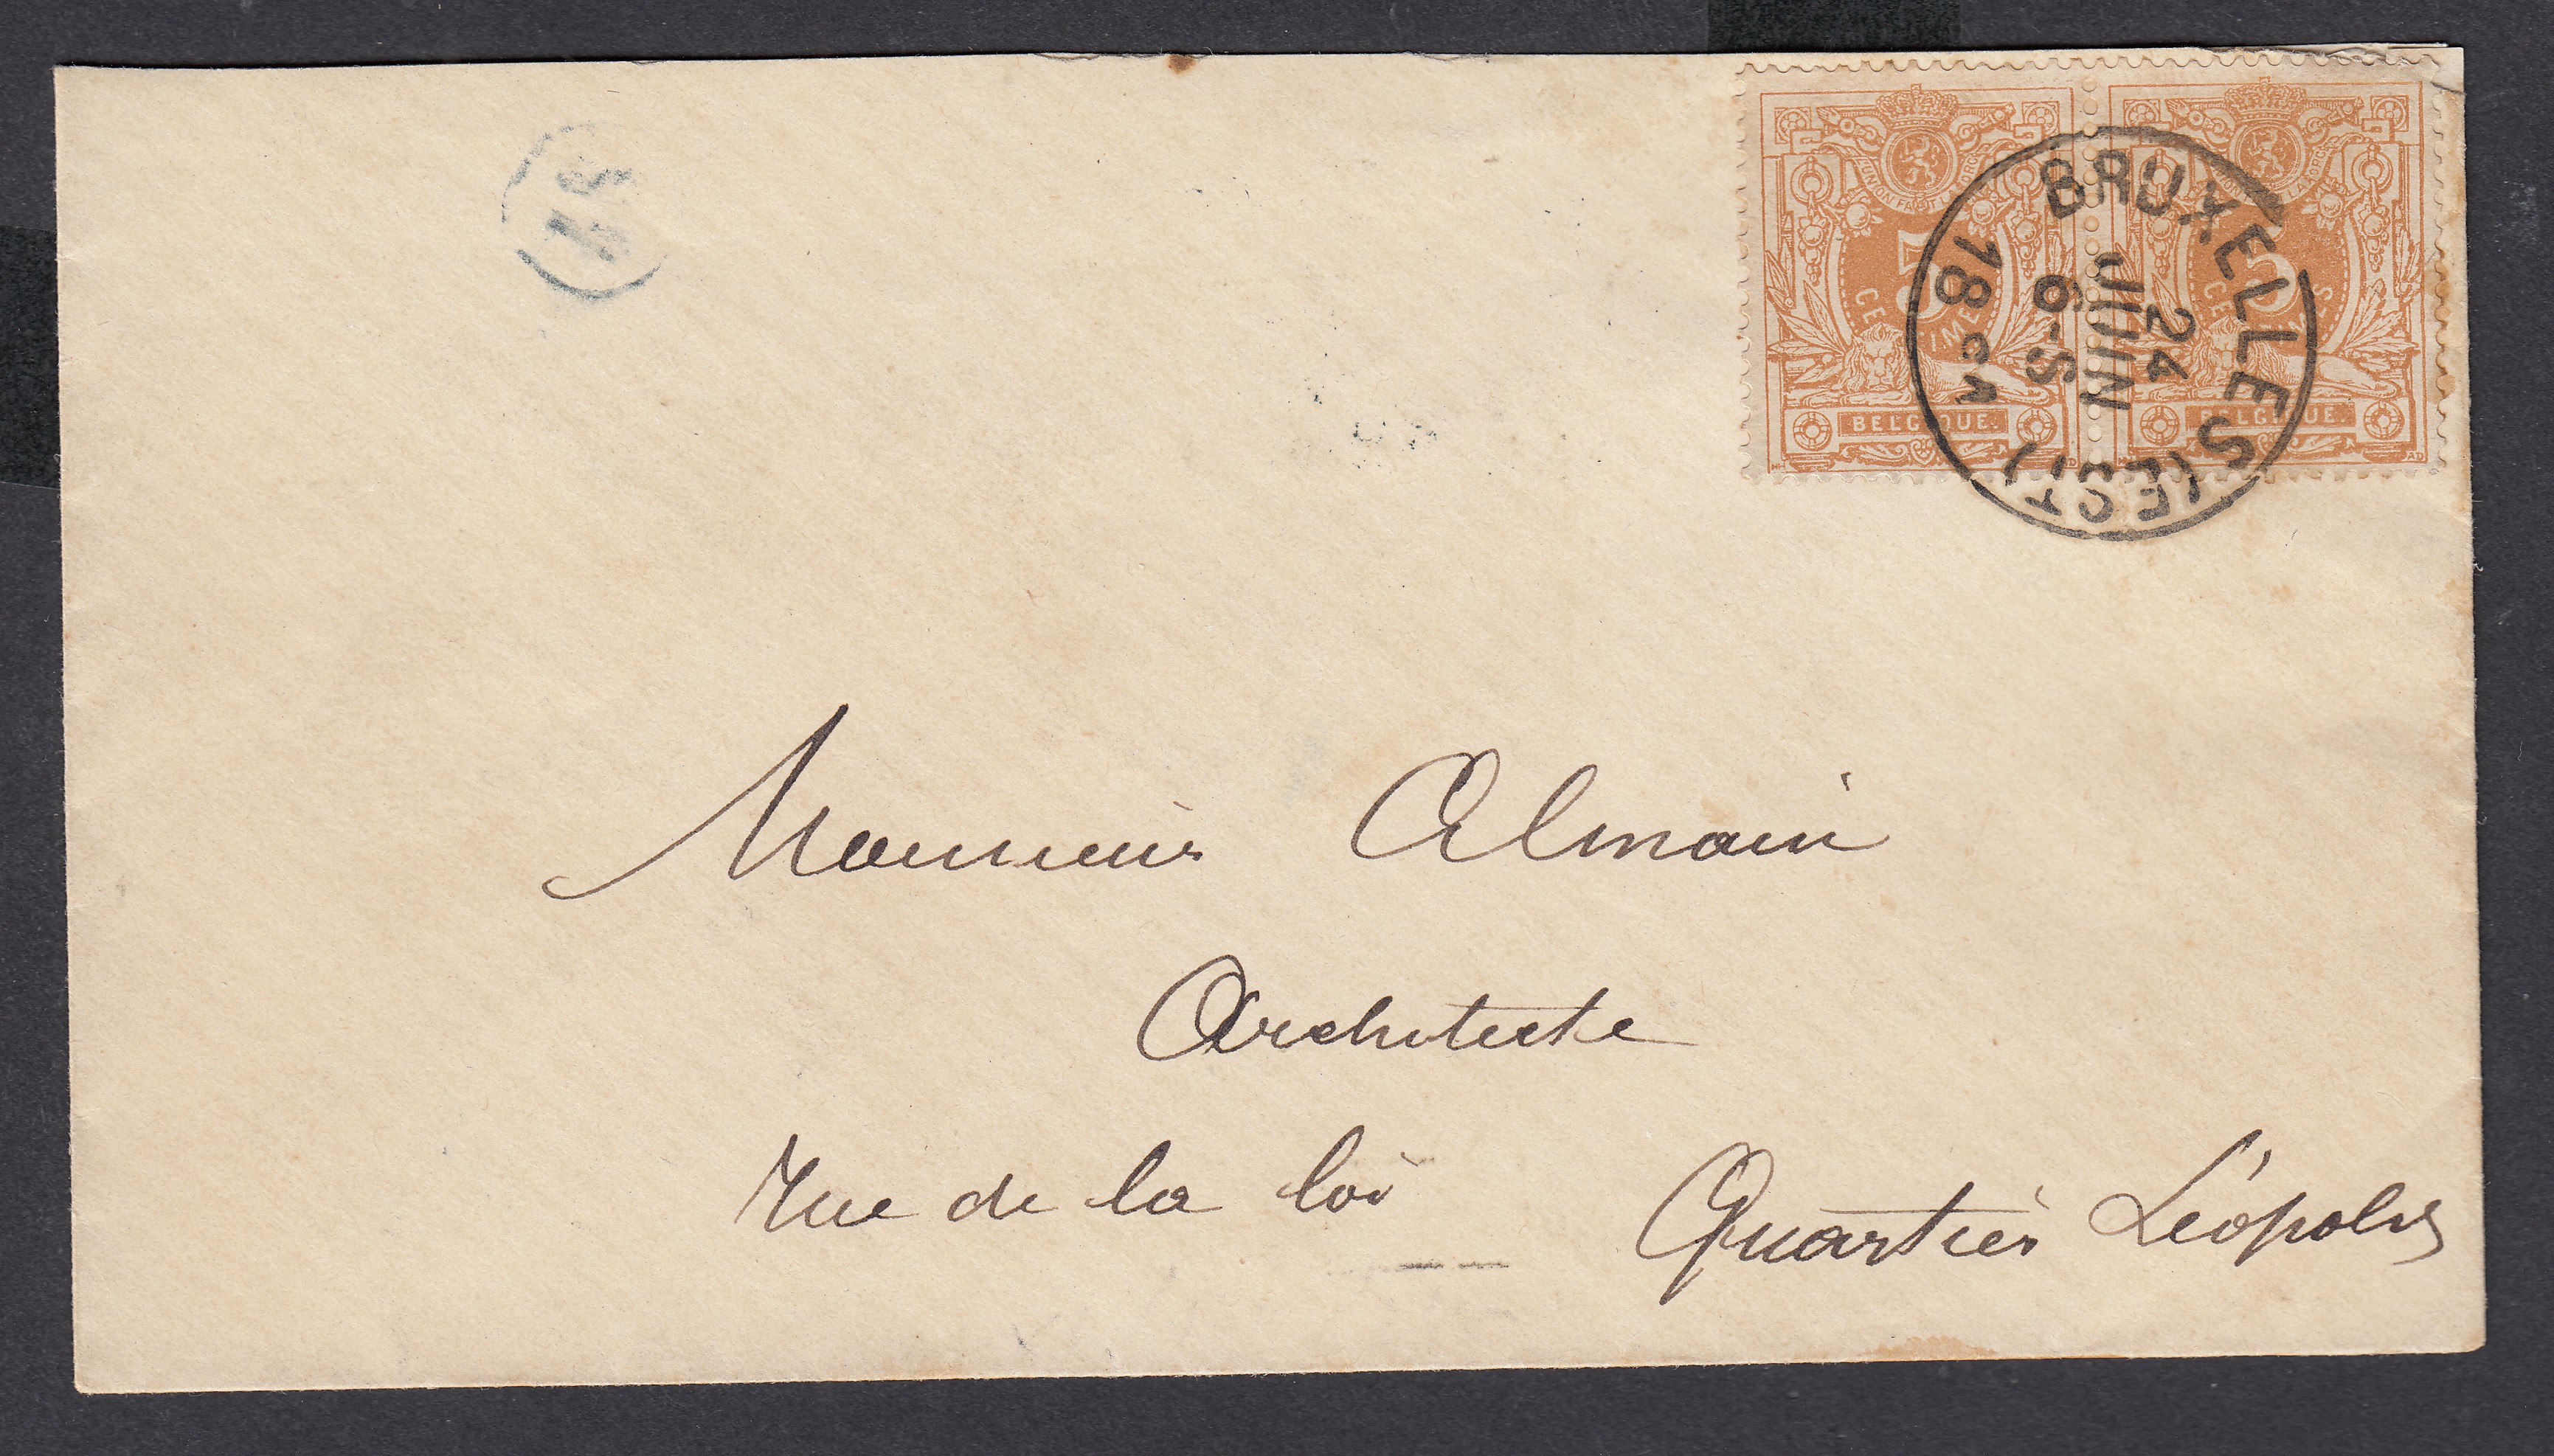 UNION FAIT LA FORCE
5
CENTIMES
BELGIQUE.
5
CENTIMES
BELGIQUE.
BRUXELLES (EST)
24
JUIN
6-S
Monsieur Almain
Architecte
Rue de la loi Quartier Léopold